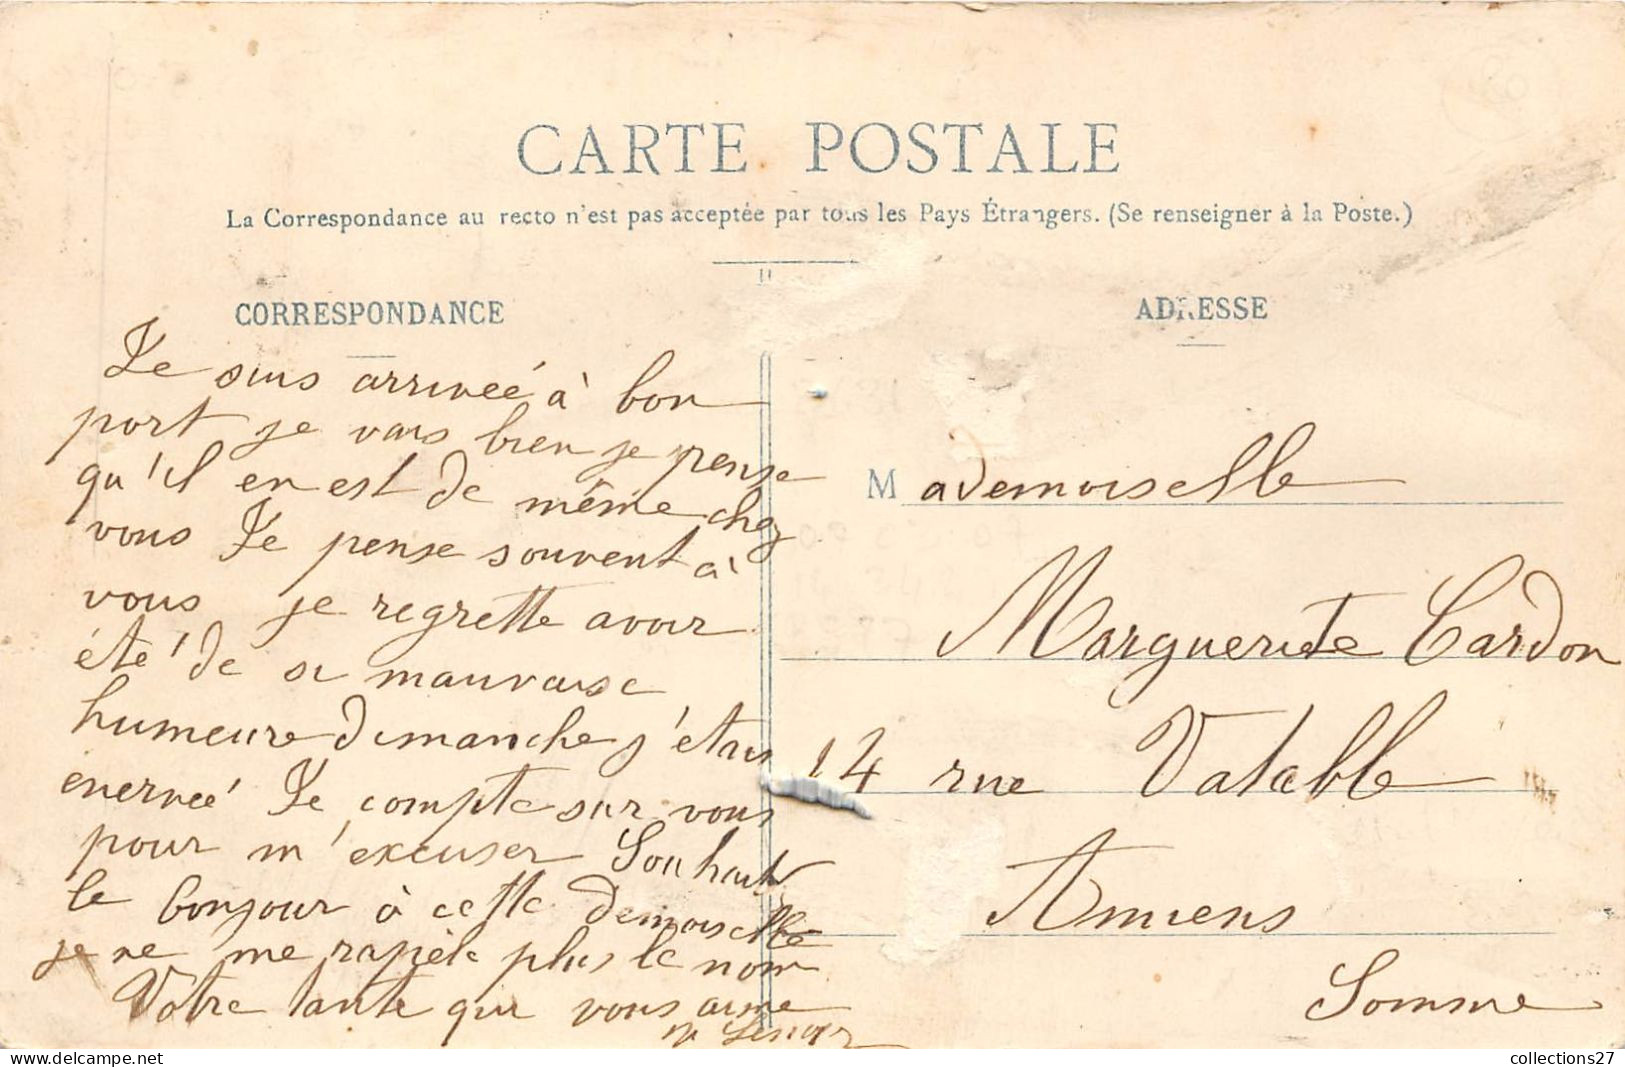 CARTE POSTALE
La Correspondance au recto n'est pas acceptée par tous les Pays Étrangers. (Se renseigner à la Poste.)
CORRESPONDANCE
Je suis arrivée à bon
port je vais bien je pense
qu'il en est de même chez
vous Je pense souvent à
vous je regrette avoir
été de si mauvaise
humeure dimanche j'étais
enervée Je compte sur vous
pour m'excuser Souhait
le bonjour à cette demoiselle
je ne me rapèle plus le nom
Votre tante qui vous aime
ADRESSE
Mademoiselle
Marguerite Cardon
14 rue Vatable
Amiens
Somme
collections27